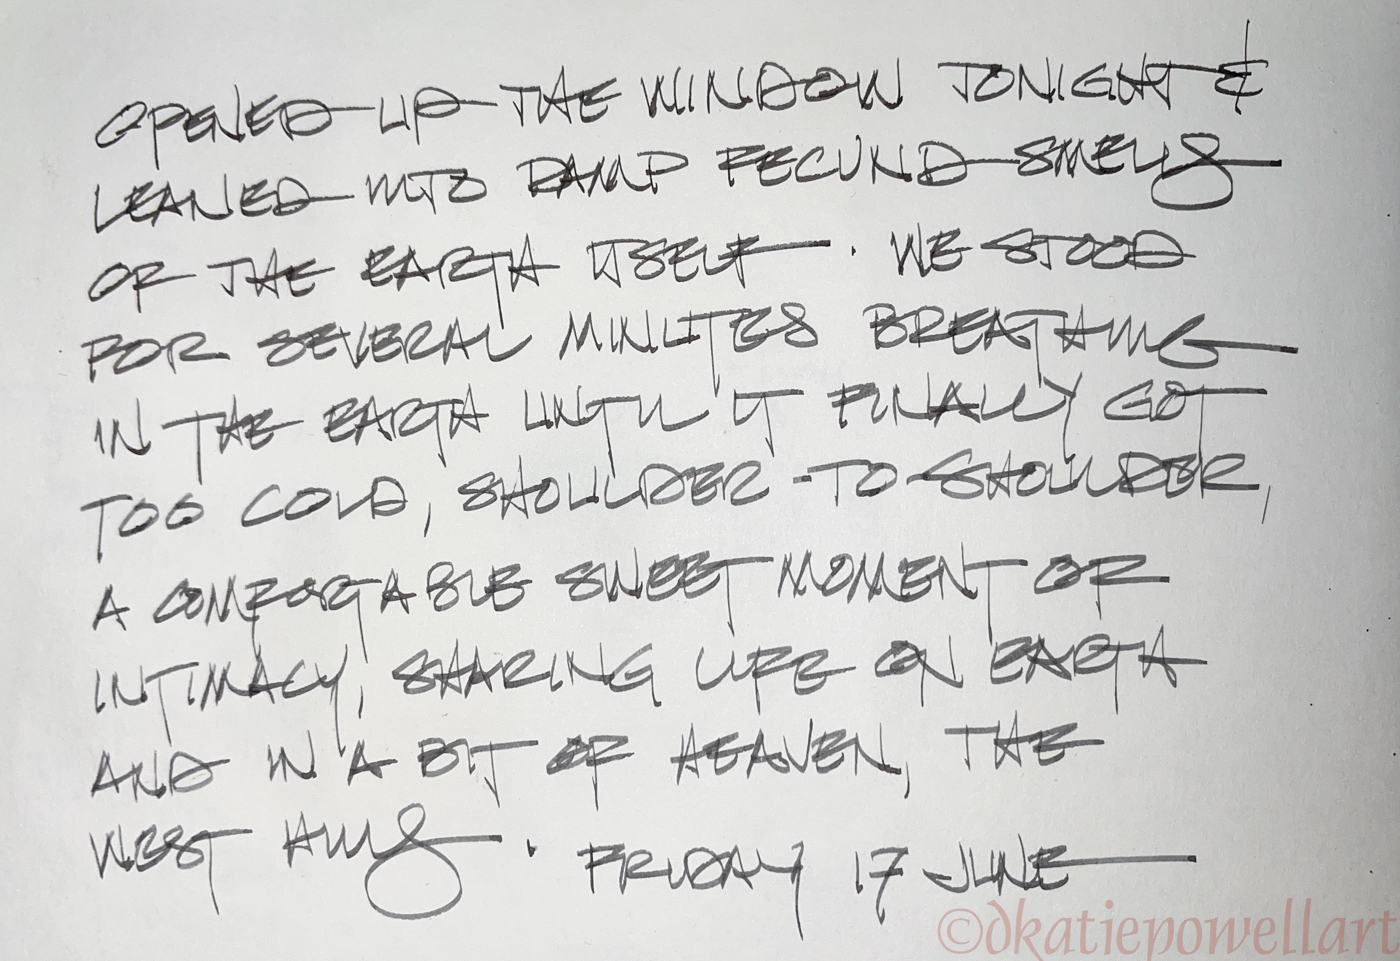 OPENED UP THE WINDOW TONIGHT &
LEANED INTO DAMP FECUND SMELLS
OF THE EARTH ITSELF. WE STOOD
FOR SEVERAL MINUTES BREATHING
IN THE EARTH UNTIL IT FINALLY GOT
TOO COLD, SHOULDER-TO-SHOULDER,
A COMFORTABLE SWEET MOMENT OF
INTIMACY, SHARING LIFE ON EARTH
AND IN A BIT OF HEAVEN, THE
WEST HILLS. FRIDAY 17 JUNE
©dkatiepowellart